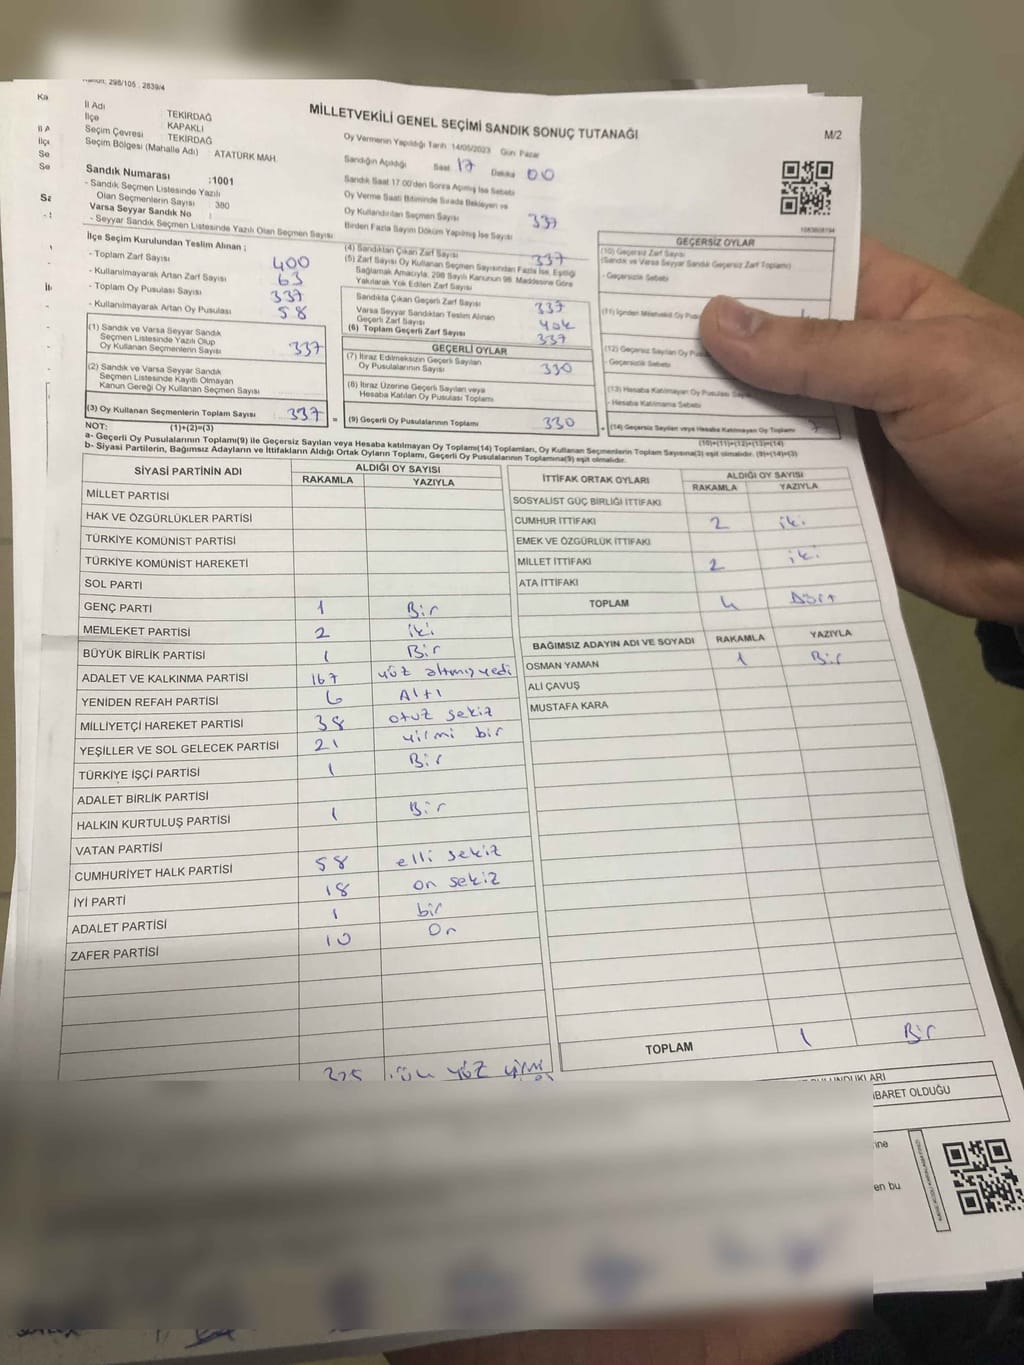 Kanun: 298/105 : 2839/4
MİLLETVEKİLİ GENEL SEÇİMİ SANDIK SONUÇ TUTANAĞI
M/2
İl Adı : TEKİRDAĞ
İlçe : KAPAKLI
Seçim Çevresi : TEKİRDAĞ
Seçim Bölgesi (Mahalle Adı) : ATATÜRK MAH.
Sandık Numarası :1001
- Sandık Seçmen Listesinde Yazılı
Olan Seçmenlerin Sayısı : 380
Varsa Seyyar Sandık No :
- Seyyar Sandık Seçmen Listesinde Yazılı Olan Seçmen Sayısı
Oy Vermenin Yapıldığı Tarih 14/05/2023 Gün Pazar
Sandığın Açıldığı Saat 17 Dakika 00
Sandık Saat 17:00'den Sonra Açılmış İse Sebebi
Oy Verme Saati Bitiminde Sırada Bekleyen ve
Oy Kullandırılan Seçmen Sayısı 337
Birden Fazla Sayım Döküm Yapılmış İse Sayısı
İlçe Seçim Kurulundan Teslim Alınan ;
- Toplam Zarf Sayısı 400
- Kullanılmayarak Artan Zarf Sayısı 63
- Toplam Oy Pusulası Sayısı 337
- Kullanılmayarak Artan Oy Pusulası 58
(1) Sandık ve Varsa Seyyar Sandık
Seçmen Listesinde Yazılı Olup
Oy Kullanan Seçmenlerin Sayısı 337
(2) Sandık ve Varsa Seyyar Sandık
Seçmen Listesinde Kayıtlı Olmayan
Kanun Gereği Oy Kullanan Seçmen Sayısı
(3) Oy Kullanan Seçmenlerin Toplam Sayısı 337 =
(4) Sandıktan Çıkan Zarf Sayısı 337
(5) Zarf Sayısı Oy Kullanan Seçmen Sayısından Fazla İse, Eşitliği
Sağlamak Amacıyla, 298 Sayılı Kanunun 98. Maddesine Göre
Yakılarak Yok Edilen Zarf Sayısı
Sandıkta Çıkan Geçerli Zarf Sayısı 337
Varsa Seyyar Sandıktan Teslim Alınan
Geçerli Zarf Sayısı yok
(6) Toplam Geçerli Zarf Sayısı 337
GEÇERLİ OYLAR
(7) İtiraz Edilmeksizin Geçerli Sayılan
Oy Pusulalarının Sayısı 330
(8) İtiraz Üzerine Geçerli Sayılan veya
Hesaba Katılan Oy Pusulası Toplamı
(9) Geçerli Oy Pusulalarının Toplamı 330 +
1083808194
GEÇERSİZ OYLAR
(10) Geçersiz Zarf Sayısı
(Sandık ve Varsa Seyyar Sandık Geçersiz Zarf Toplamı)
- Geçersizlik Sebebi
(11) İçinden Milletvekili Oy Pusu
(12) Geçersiz Sayılan Oy Pusula
- Geçersizlik Sebebi
(13) Hesaba Katılmayan Oy Pusulası Sayısı
- Hesaba Katılmama Sebebi
(14) Geçersiz Sayılan veya Hesaba Katılmayan Oy Toplamı 7
(10)+(11)+(12)+(13)=(14)
NOT: (1)+(2)=(3)
a- Geçerli Oy Pusulalarının Toplamı(9) ile Geçersiz Sayılan veya Hesaba katılmayan Oy Toplamı(14) Toplamları, Oy Kullanan Seçmenlerin Toplam Sayısına(3) eşit olmalıdır. (9)+(14)=(3)
b- Siyasi Partilerin, Bağımsız Adayların ve İttifakların Aldığı Ortak Oyların Toplamı, Geçerli Oy Pusulalarının Toplamına(9) eşit olmalıdır.
SİYASİ PARTİNİN ADI ALDIĞI OY SAYISI
RAKAMLA YAZIYLA
MİLLET PARTİSİ
HAK VE ÖZGÜRLÜKLER PARTİSİ
TÜRKİYE KOMÜNİST PARTİSİ
TÜRKİYE KOMÜNİST HAREKETİ
SOL PARTİ
GENÇ PARTİ 1 Bir
MEMLEKET PARTİSİ 2 iki
BÜYÜK BİRLİK PARTİSİ 1 Bir
ADALET VE KALKINMA PARTİSİ 167 yüz altmış yedi
YENİDEN REFAH PARTİSİ 6 Altı
MİLLİYETÇİ HAREKET PARTİSİ 38 otuz sekiz
YEŞİLLER VE SOL GELECEK PARTİSİ 21 yirmi bir
TÜRKİYE İŞÇİ PARTİSİ 1 Bir
ADALET BİRLİK PARTİSİ
HALKIN KURTULUŞ PARTİSİ 1 Bir
VATAN PARTİSİ
CUMHURİYET HALK PARTİSİ 58 elli sekiz
İYİ PARTİ 18 on sekiz
ADALET PARTİSİ 1 bir
ZAFER PARTİSİ 10 On
325 üç yüz yirmi
İTTİFAK ORTAK OYLARI ALDIĞI OY SAYISI
RAKAMLA YAZIYLA
SOSYALİST GÜÇ BİRLİĞİ İTTİFAKI
CUMHUR İTTİFAKI 2 iki
EMEK VE ÖZGÜRLÜK İTTİFAKI
MİLLET İTTİFAKI 2 iki
ATA İTTİFAKI
TOPLAM 4 Dört
BAĞIMSIZ ADAYIN ADI VE SOYADI RAKAMLA YAZIYLA
OSMAN YAMAN 1 Bir
ALİ ÇAVUŞ
MUSTAFA KARA
TOPLAM 1 Bir
BULUNDUKLARI
İBARET OLDUĞU
ine
en bu